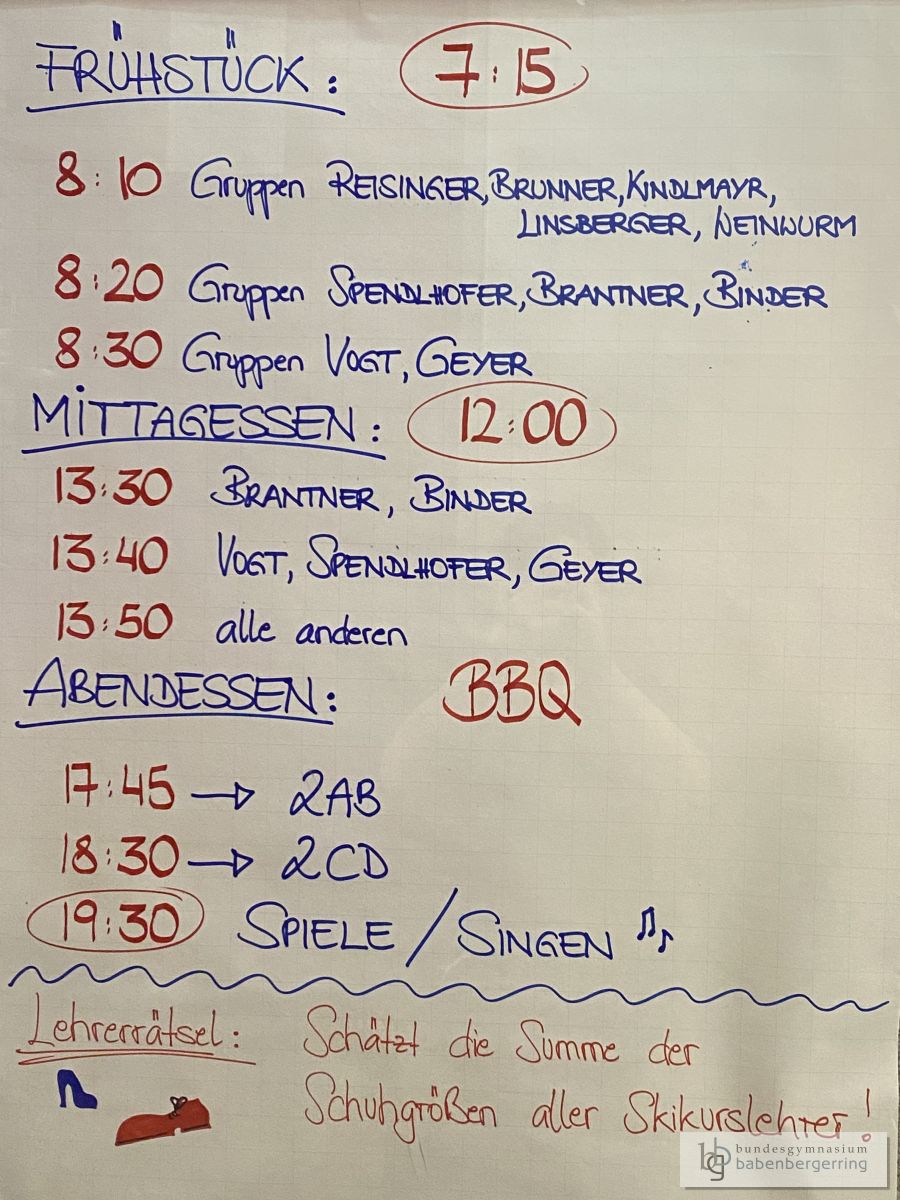 FRÜHSTÜCK: 7:15
8:10 Gruppen REISINGER, BRUNNER, KINDLMAYR,
LINSBERGER, WEINWURM
8:20 Gruppen SPENDLHOFER, BRANTNER, BINDER
8:30 Gruppen VOGT, GEYER
MITTAGESSEN: 12:00
13:30 BRANTNER, BINDER
13:40 VOGT, SPENDLHOFER, GEYER
13:50 alle anderen
ABENDESSEN: BBQ
17:45 → 2AB
18:30 → 2CD
19:30 SPIELE / SINGEN
Lehrerrätsel: Schätzt die Summe der
Schuhgrößen aller Skikurslehrer!
bg bundesgymnasium
babenbergerring